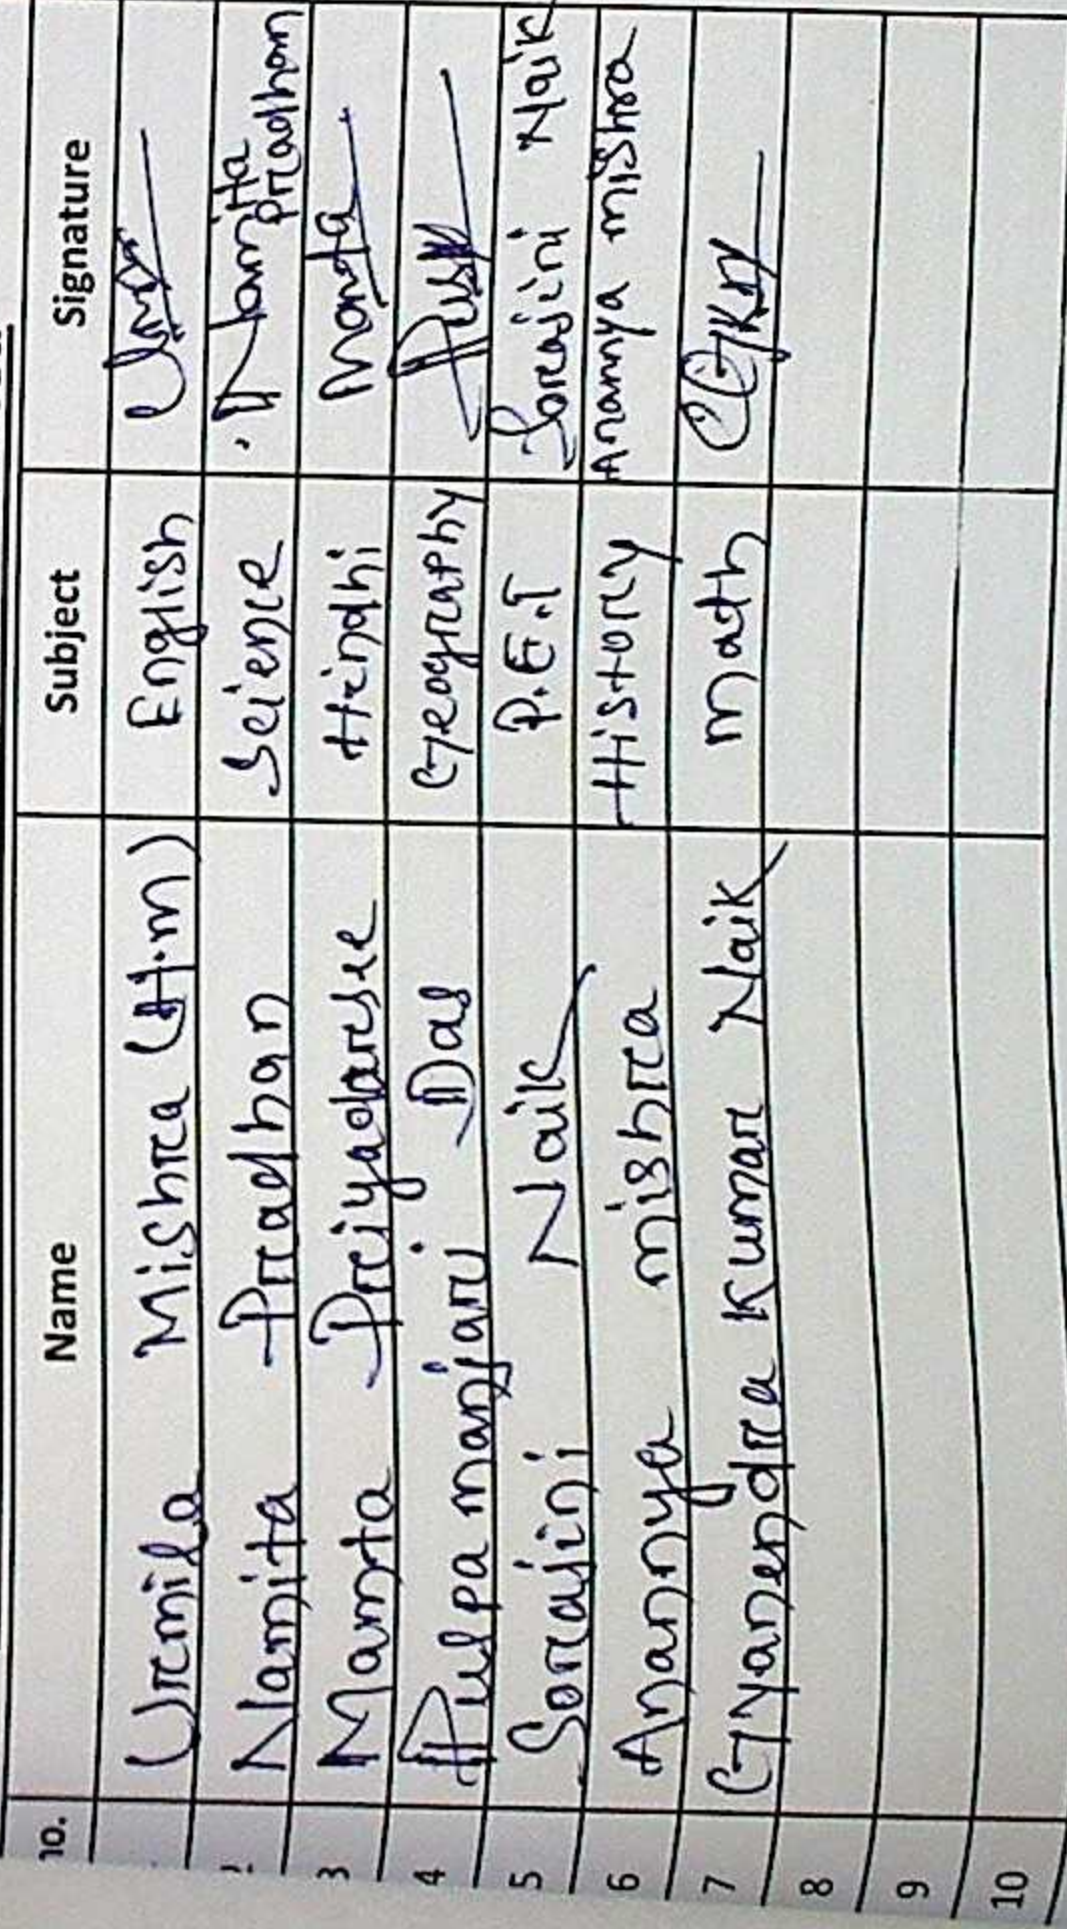 no. Name Subject Signature
Urmila Mishra (H.M) English
2 Namita Pradhan Science Namita Pradhan
3 Mamta Priyadarsee Hindhi Mamta
4 Puspa manjari Das Geography
5 Sorajini Naik P.E.T Sorajini Naik
6 Ananya mishra History Ananya mishra
7 Gyanendra Kumar Naik math
8
9
10